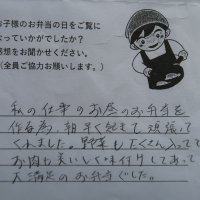 お子様のお弁当の日をご覧に
なっていかがでしたか？
感想をお聞かせください。
（全員ご協力お願いします。）
私の仕事のお昼のお弁当を
作る為、朝早く起きて頑張って
くれました。野菜もたくさん入ってて
お肉も美しい味付けしてあって
大満足のお弁当でした。